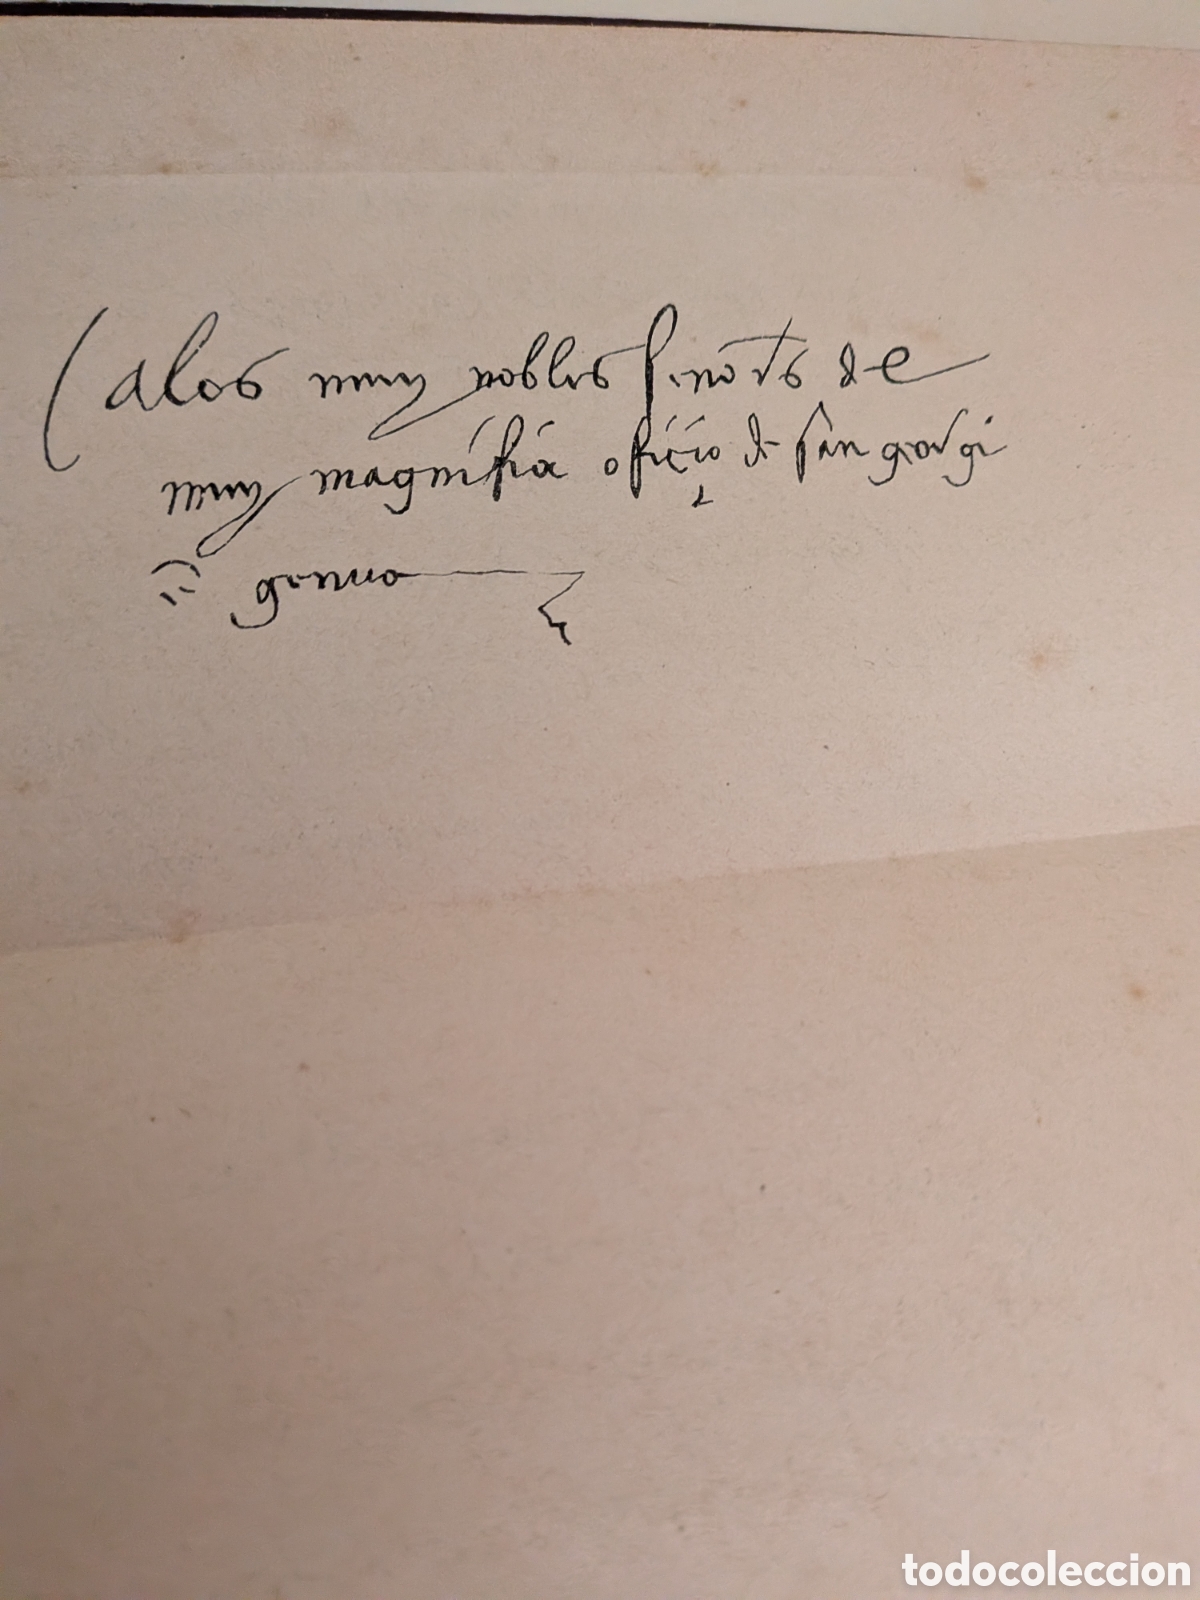 alos muy nobles señores de
muy magnifico ofiçio de san georgi
genua
todocoleccion